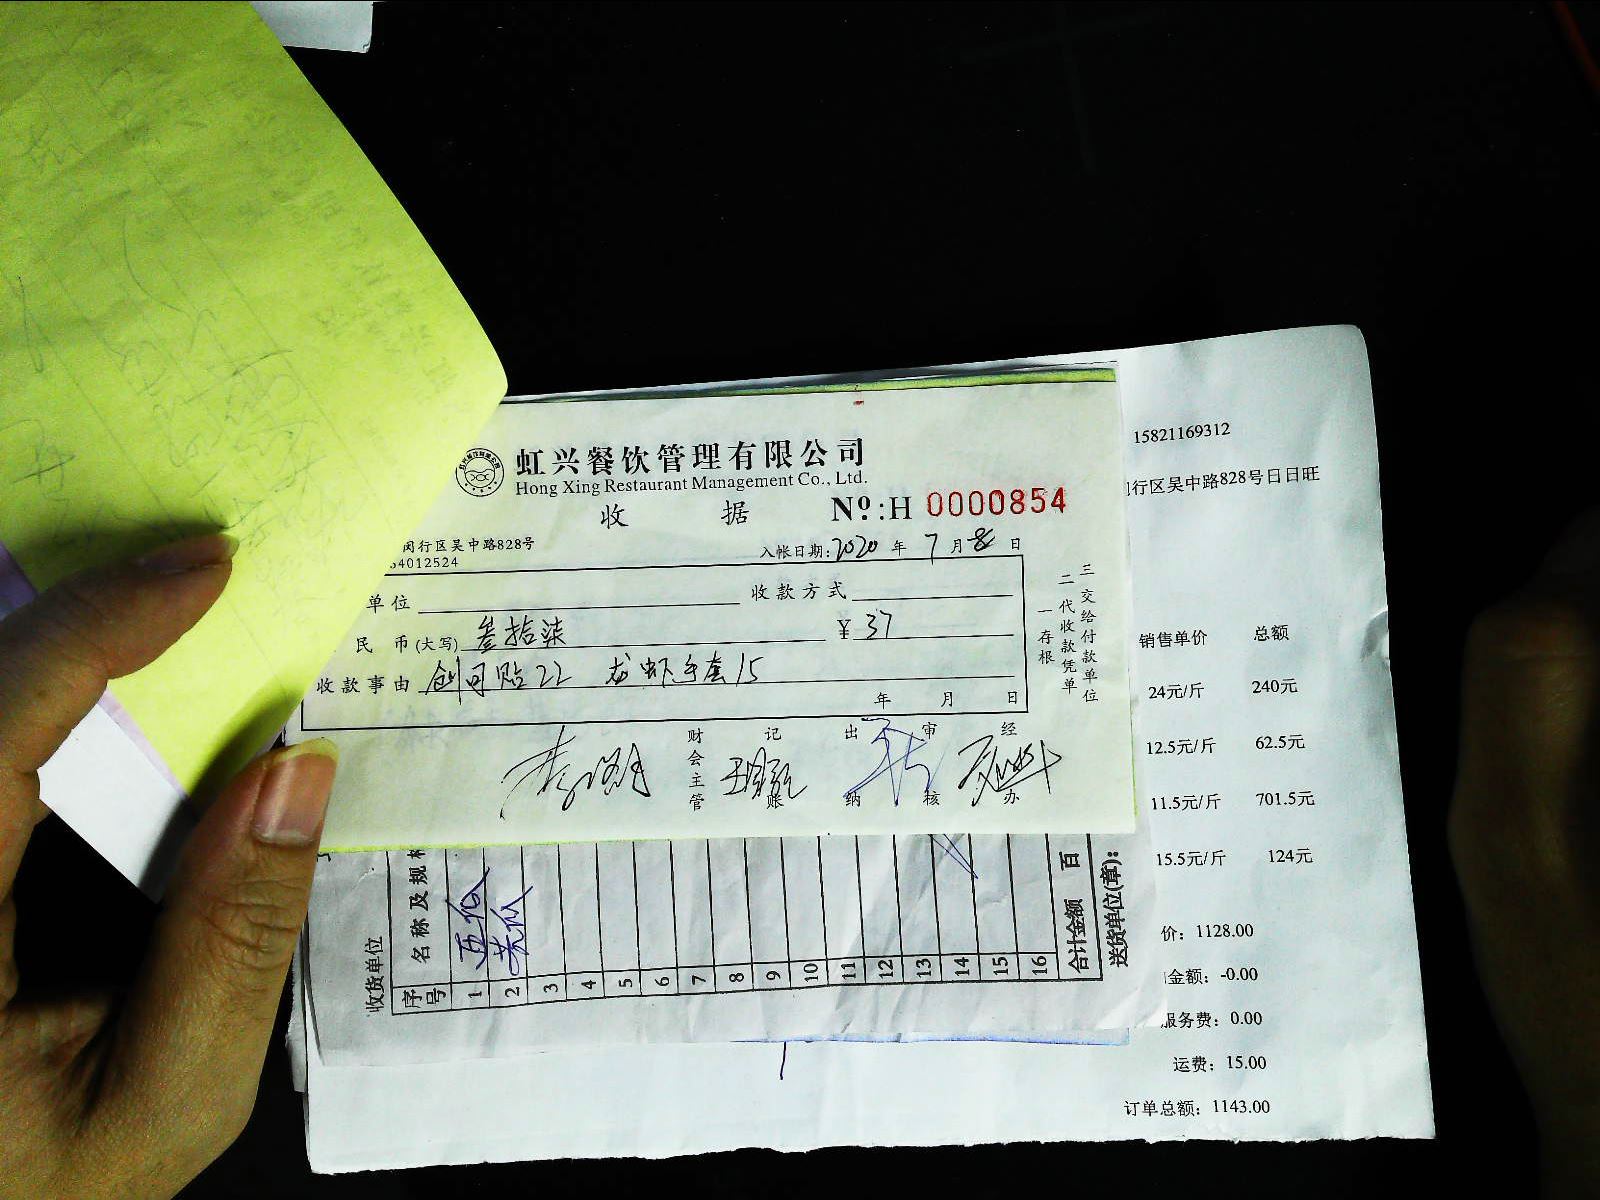 虹兴餐饮管理有限公司
Hong Xing Restaurant Management Co., Ltd.
收 据
Nº:H 0000854
闵行区吴中路828号
54012524
入帐日期:2020 年 7 月 8 日
单位
收款方式
民 币(大写) 叁拾柒
¥ 37
收款事由 创可贴22 龙虾手套15
年 月 日
一存根
二代收款凭单
三交给付款单位
财会主管
记账
出纳
审核
经办
15821169312
行区吴中路828号日日旺
销售单价 总额
24元/斤 240元
12.5元/斤 62.5元
11.5元/斤 701.5元
15.5元/斤 124元
价: 1128.00
金额: -0.00
服务费: 0.00
运费: 15.00
订单总额: 1143.00
收货单位
序号
名称及规格
1
2
3
4
5
6
7
8
9
10
11
12
13
14
15
16
合计金额 百
送货单位(章):